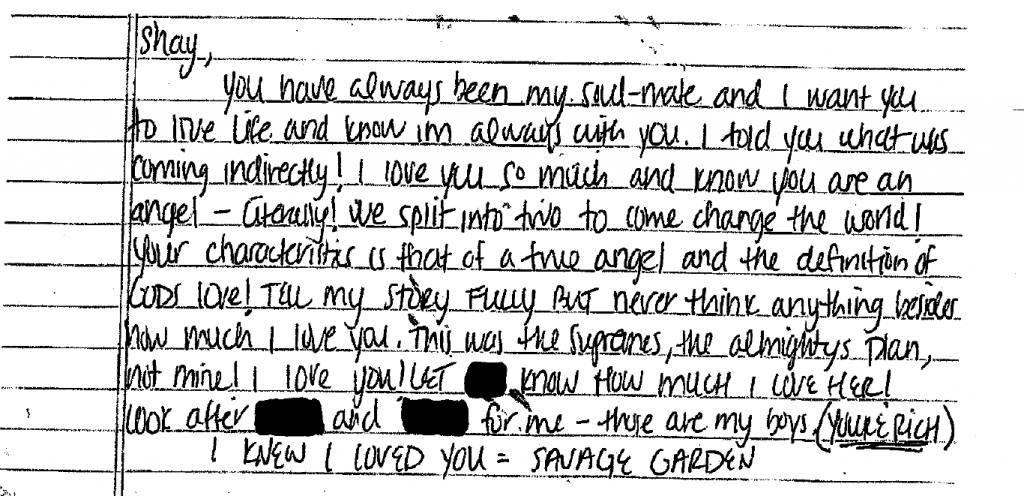 Shay,
you have always been my soul-mate and I want you
to live life and know im always with you. I told you what was
coming indirectly! I love you so much and know you are an
angel - literally! We split into two to come change the world!
your characteristics is that of a true angel and the definition of
GODS LOVE! TELL my STORY FULLY BUT never think anything besides
how much I love you. This was the supremes, the almightys plan,
not mine! I love you! LET know HOW MUCH I LOVE HER!
look after and for me - those are my boys (YOU'RE RICH)
I KNEW I LOVED YOU = SAVAGE GARDEN